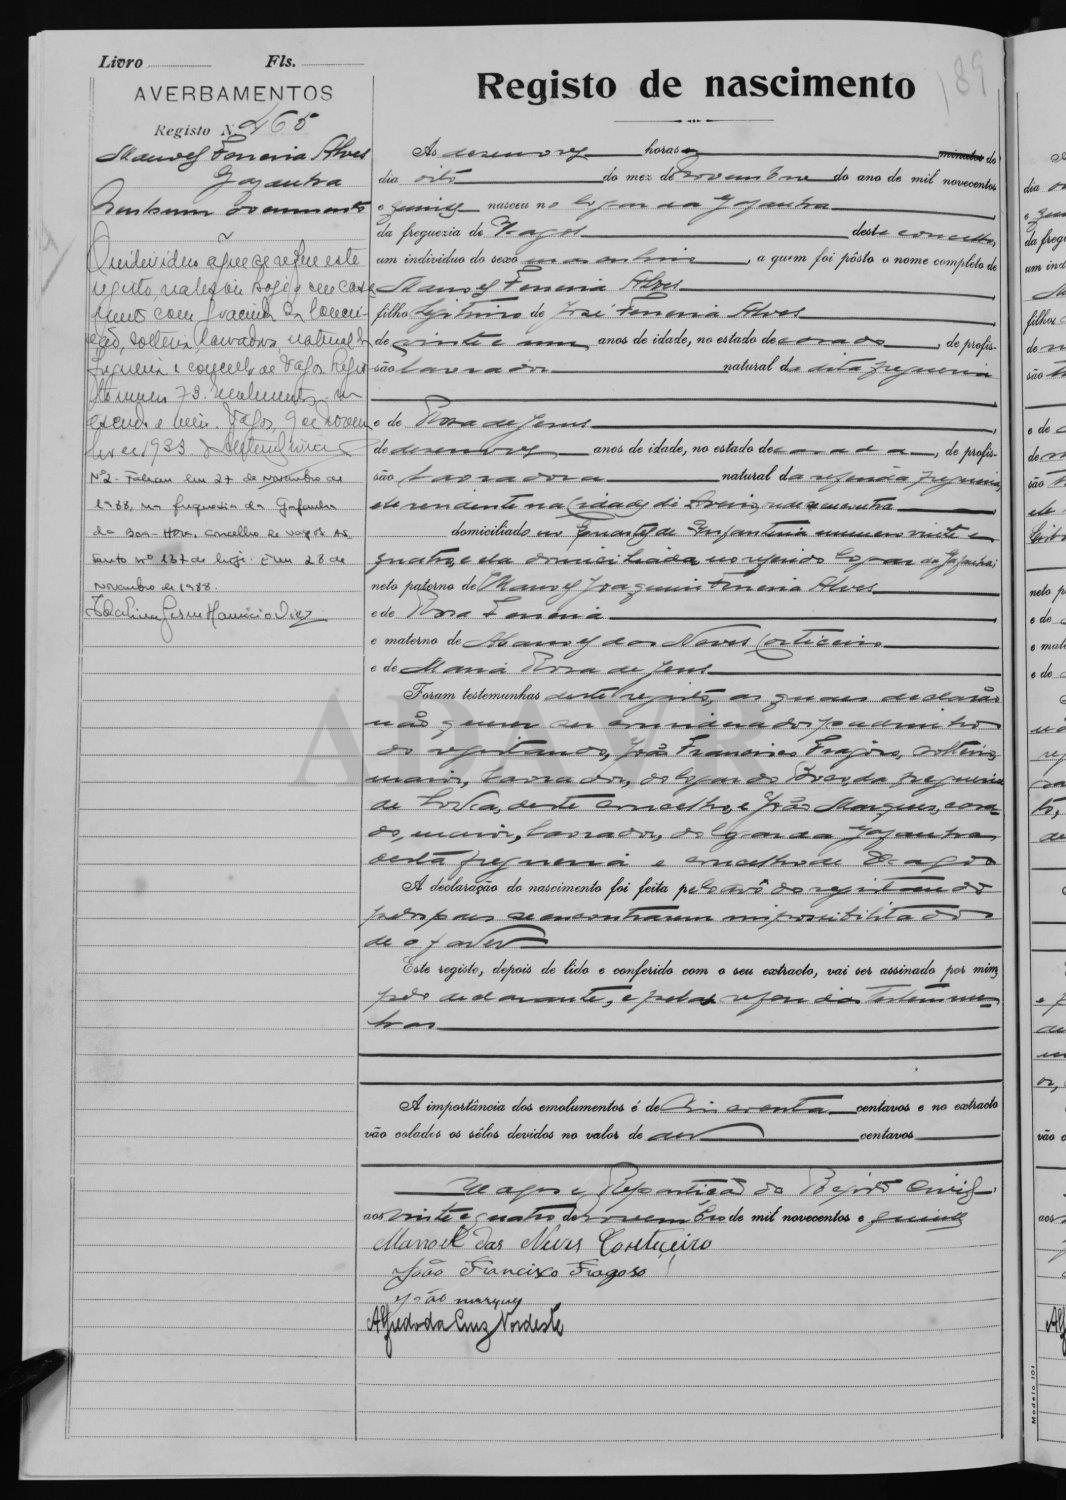 Livro Fls.
AVERBAMENTOS
Registo N.º 465
Manoel Ferreira Alves
Gafanha
Nenhum documento
O individuo a que se refere este
registo, celebrou hoje o seu casa
mento com Gracinda da Concei-
ção, solteira, lavradora, natural da
freguesia e concelho de Vagos. Registo
numero 73.
Vagos, 9 de Novem
bro de 1933.
Nº2 - Faleceu em 27 de Novembro de
1988, na freguesia da Gafanha
da Boa-Hora, concelho de Vagos. As
sento nº 137 de hoje. Em 28 de
Novembro de 1988.
189
Registo de nascimento
Ás dezenove horas e minutos do
dia oito do mez de Novembro do ano de mil novecentos
e quinze nasceu no logar da Gafanha
da freguezia de Vagos deste concelho,
um individuo do sexo masculino, a quem foi pôsto o nome completo de
Manoel Ferreira Alves
filho legitimo de José Ferreira Alves
de vinte e um anos de idade, no estado de casado, de profis-
são lavrador natural da dita freguesia
e de Rosa de Jesus
de dezenove anos de idade, no estado de casada, de profis-
são lavradora natural da referida freguesia,
ele residente na cidade de Aveiro, onde se encontra
domiciliado no Regimento de Infantaria numero vinte e
quatro, e ela domiciliada no referido logar da Gafanha;
neto paterno de Manoel Joaquim Ferreira Alves
e de Rosa Ferreira
e materno de Manoel das Neves Corticeiro
e de Maria Rosa de Jesus
Foram testemunhas deste registo, as quaes declararão
não querer ser consideradas padrinhos
do registando, João Francisco Fragoso, solteiro,
maior, lavrador, do logar do Boco, da freguesia
de Soza, deste concelho, e João Marques, casa-
do, maior, lavrador, do logar da Gafanha
desta freguesia e concelho de Vagos
A declaração do nascimento foi feita pelo avô do registando
pelos paes se encontrarem impossibilitados
de o fazer
Este registo, depois de lido e conferido com o seu extracto, vai ser assinado por mim,
pelo declarante, e pelas referidas testemu-
nhas
A importância dos emolumentos é de cincoenta centavos e no extracto
vão colados os sêlos devidos no valor de dez centavos
Vagos e Repartição do Registo Civil,
aos vinte e quatro de Novembro de mil novecentos e quinze
Manoel das Neves Corticeiro
João Francisco Fragoso
João marques
Alfredo da Cruz Nordeste
ADAVR
Modelo 101